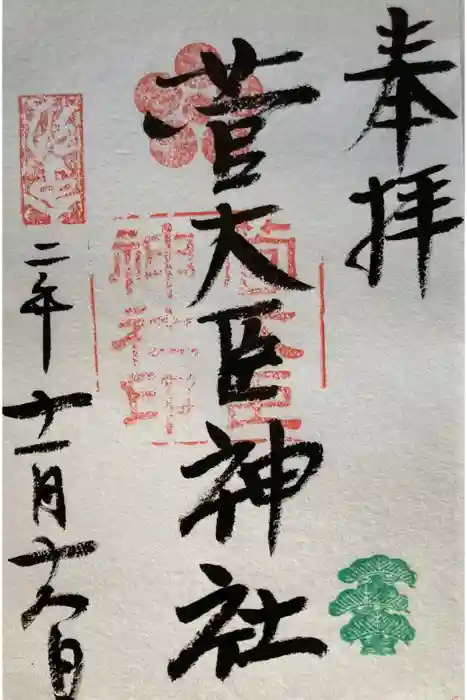 奉拝
菅大臣神社
菅大臣
神社印
二年
十一月十六日